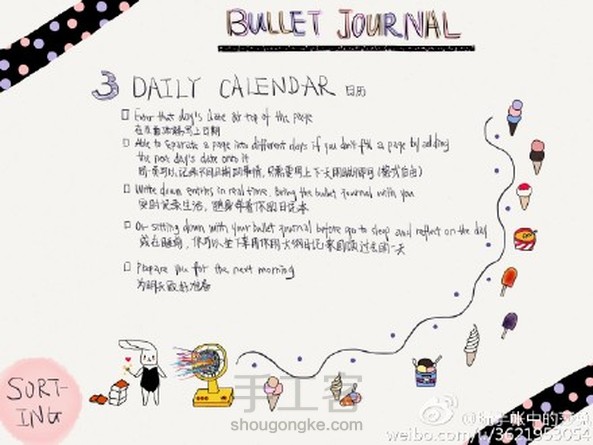 BULLET JOURNAL
3 DAILY CALENDAR 日历
Enter that day's date at top of the page
在页面顶端写上日期
Able to separate a page into different days if you don't fill a page by adding
the next day's date onto it
Write down entries in real time. Bring the bullet journal with you
实时记录生活，随身带着你的日记本
Or sitting down with your bullet journal before go to sleep and reflect on the day
Prepare you for the next morning
为明天做好准备
SORT-
ING
手工客
shougongke.com
weibo.com/u/3621953054